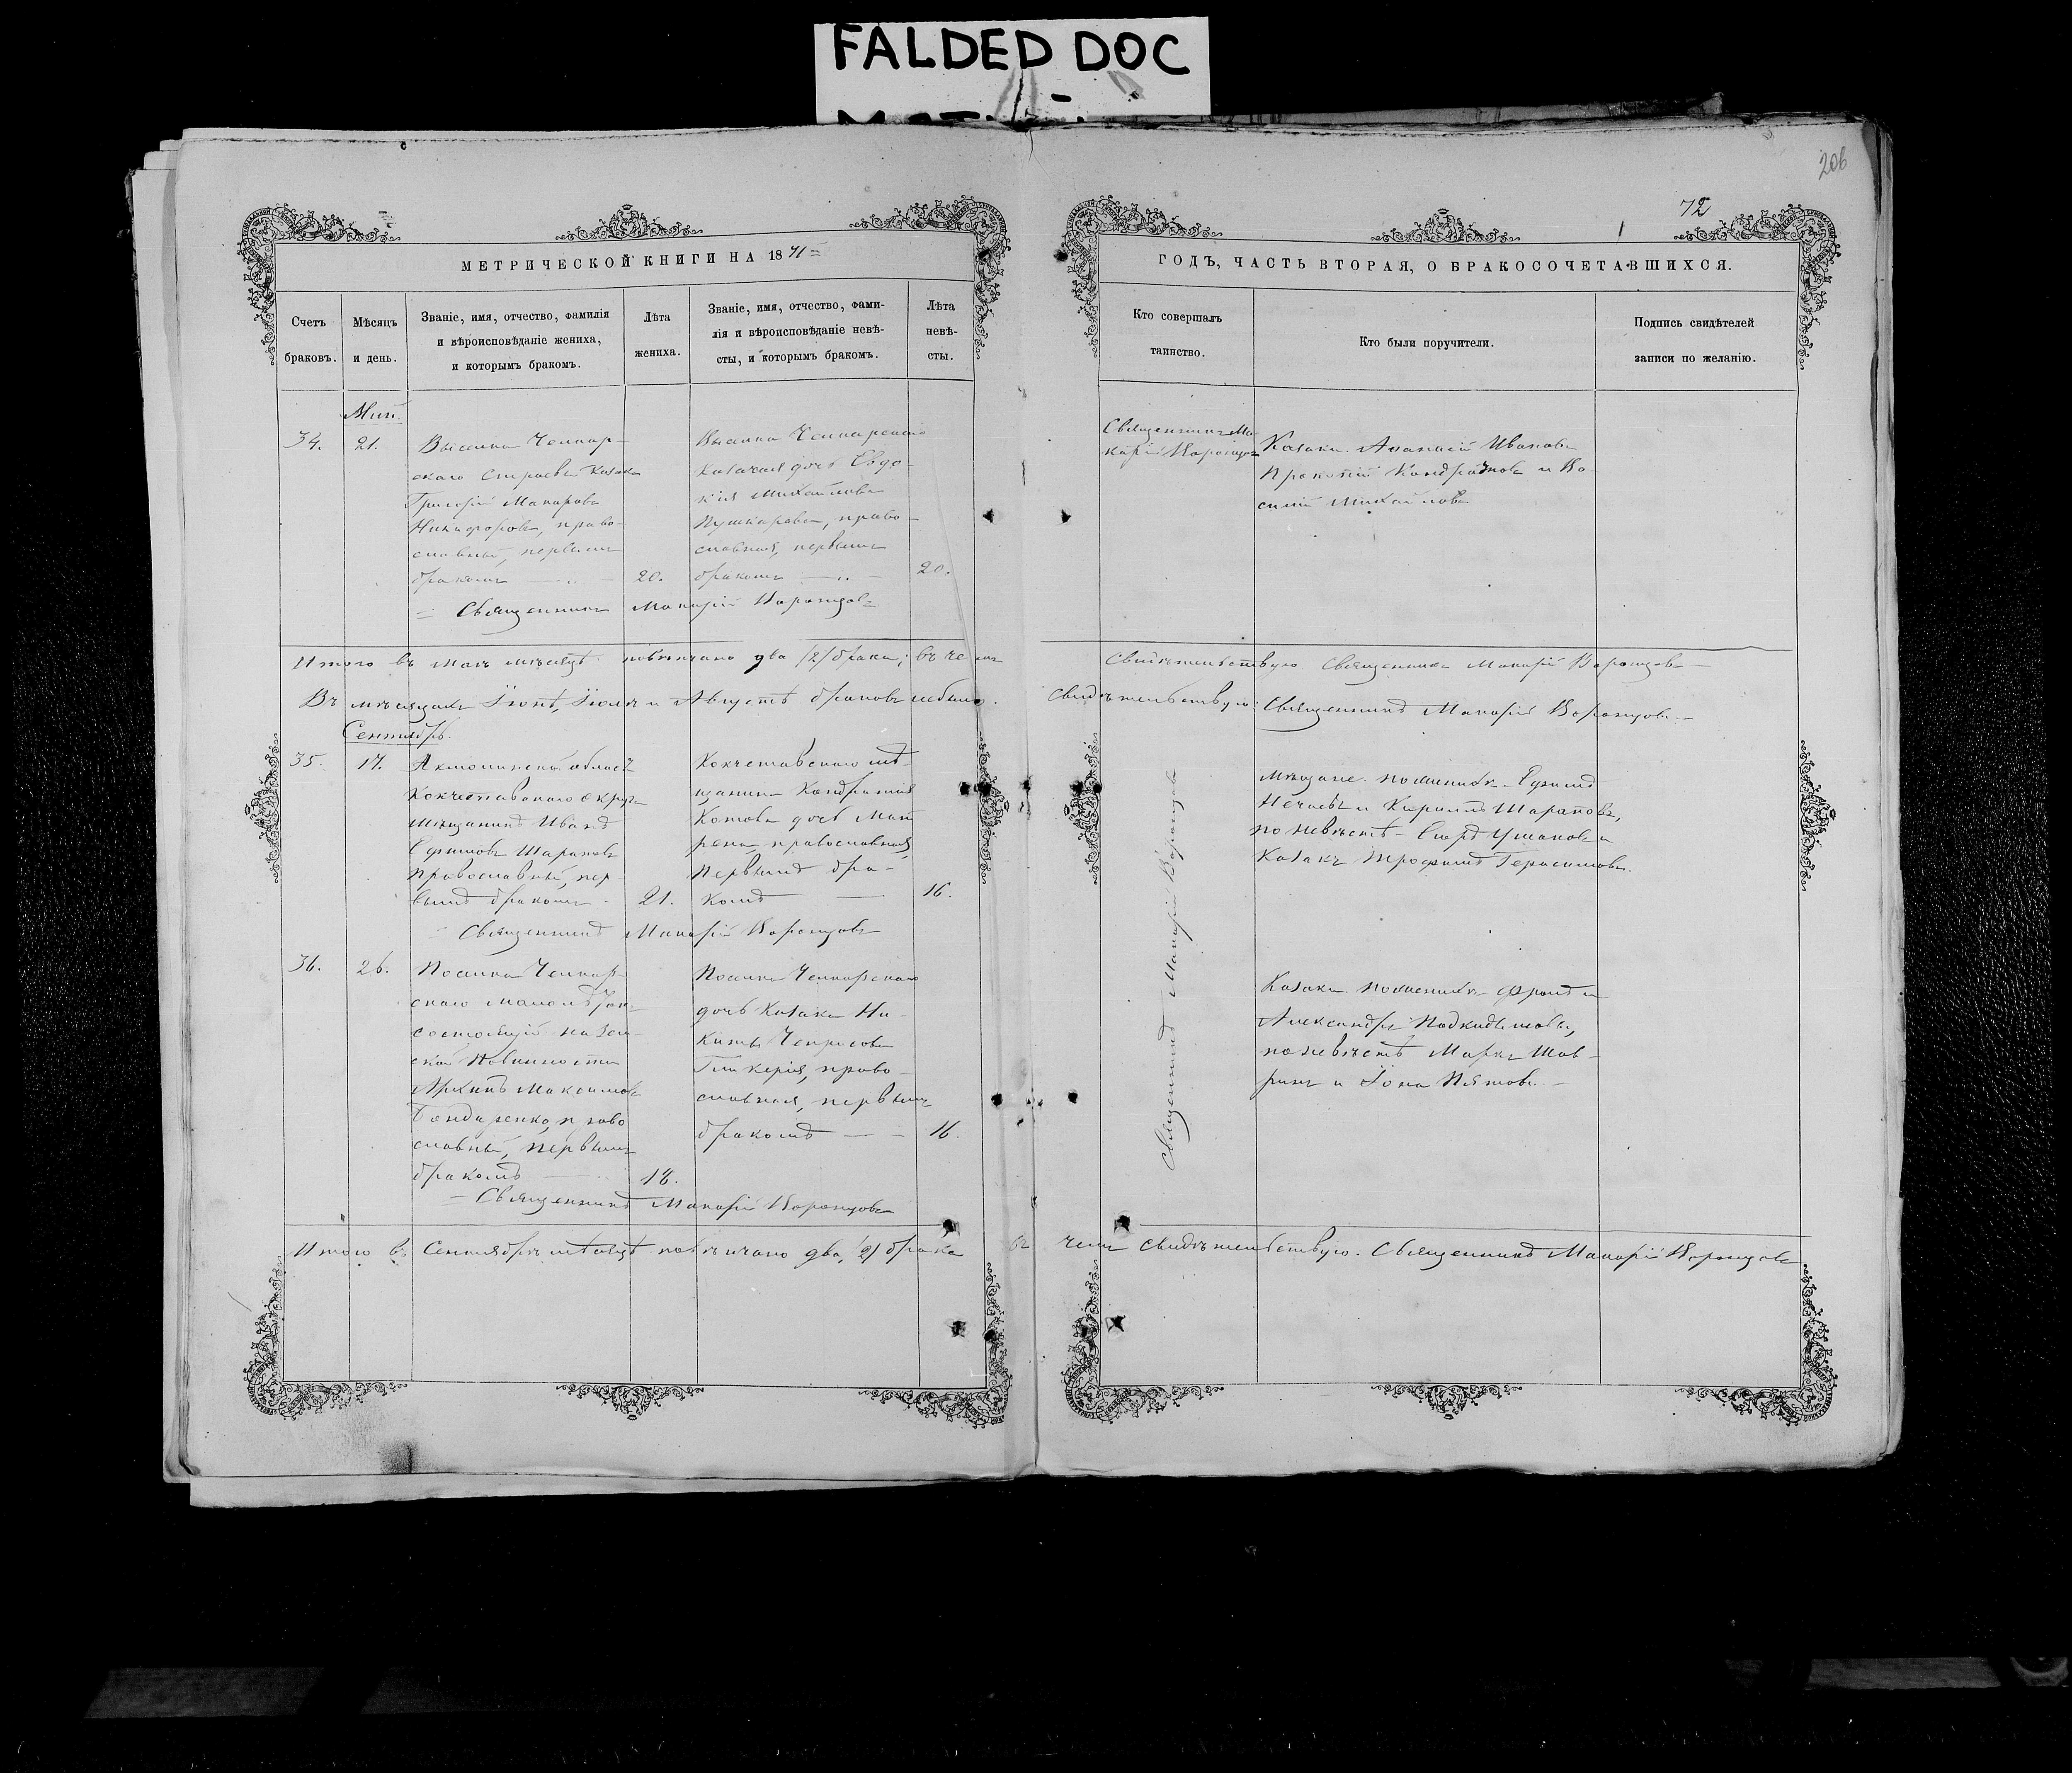 FALDED DOC
206
72
МЕТРИЧЕСКОЙ КНИГИ НА 1871
ГОДЪ, ЧАСТЬ ВТОРАЯ, О БРАКОСОЧЕТАВШИХСЯ.
Счетъ
браковъ.
Мѣсяцъ
и день.
Званіе, имя, отчество, фамилія
и вѣроисповѣданіе жениха,
и которымъ бракомъ.
Лѣта
жениха.
Званіе, имя, отчество, фами-
лія и вѣроисповѣданіе невѣ-
сты, и которымъ бракомъ.
Лѣта
невѣ-
сты.
Кто совершалъ
таинство.
Кто были поручители.
Подпись свидѣтелей
записи по желанію.
Май.
34.
21.
Выселка Челкар-
скаго Казакъ
Григорій Макаровъ
Никифоровъ, право-
славный, первымъ
бракомъ
20.
Выселка Челкарскаго
Казачья дочь Евдо-
кія Михайлова
Пушкарева, право-
славная, первымъ
бракомъ
20.
Священникъ Ма-
карій Воронцовъ
Казаки Аѳанасій Ивановъ
Прокопій Кондратовъ и Ва
силій Михайловъ
Священникъ Макарій Воронцовъ
Итого въ Маѣ мѣсяцѣ повѣнчано два /2/ брака; въ чемъ
свидѣтельствую Священникъ Макарій Воронцовъ
Въ мѣсяцахъ Іюнѣ, Іюлѣ и Августѣ браковъ небыло.
Свидѣтельствую: Священникъ Макарій Воронцовъ
Сентябрь.
35.
17.
Акмолинской област
Кокчетавскаго округа
мѣщанинъ Иванъ
Ефимовъ Шараповъ
православный, пер-
вымъ бракомъ
21.
Кокчетавскаго мѣ-
щанина Кондратія
Котова дочь Мат
рена, православная,
первымъ бра-
комъ
16.
Мѣщане по женихѣ Ефимъ
Нечаевъ и Кириллъ Шараповъ,
по невѣстѣ - Егоръ Ушаковъ и
Казакъ Трофимъ Герасимовъ.
Священникъ Макарій Воронцовъ
36.
26.
Поселка Челкар-
скаго
состоящій на Зем-
ской Повинности
Архипъ Максимовъ
Бондаренко, право
славный, первымъ
бракомъ
18.
Поселка Челкарскаго
дочь Казака Ни-
киты Чепрасова
Гликерія, право-
славная, первымъ
бракомъ
16.
Казаки по женихѣ Фролъ и
Александръ Подкидышевы,
по невѣстѣ Маркъ Шав-
ринъ и Іона Пятовъ
Священникъ Макарій Воронцовъ
Священникъ Макарій Воронцовъ
Итого въ Сентябрѣ мѣсяцѣ повѣнчано два /2/ брака въ чемъ свидѣтельствую. Священникъ Макарій Воронцовъ